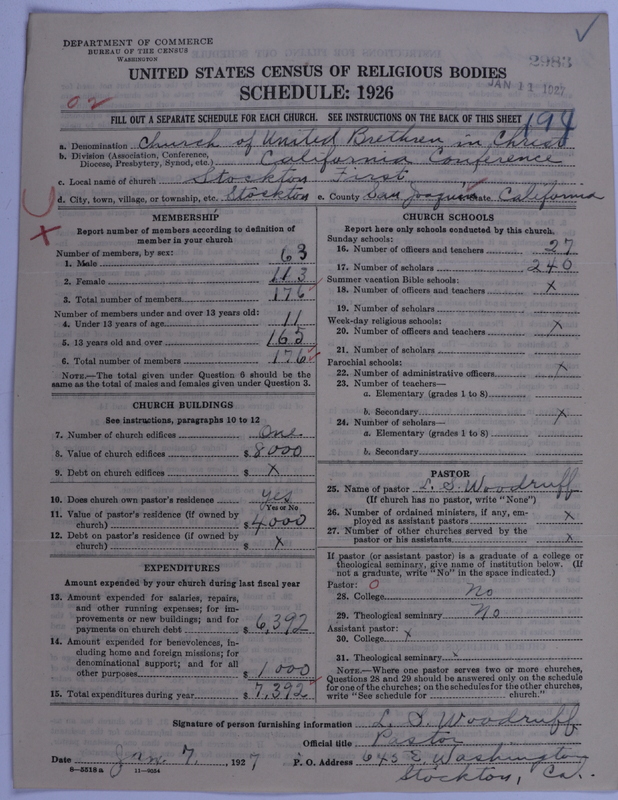 DEPARTMENT OF COMMERCE
BUREAU OF THE CENSUS
WASHINGTON
2983
JAN 11 1927
UNITED STATES CENSUS OF RELIGIOUS BODIES
SCHEDULE: 1926
FILL OUT A SEPARATE SCHEDULE FOR EACH CHURCH. SEE INSTRUCTIONS ON THE BACK OF THIS SHEET
a. Denomination Church of United Brethren in Christ
b. Division (Association, Conference, Diocese, Presbytery, Synod, etc.) California Conference
c. Local name of church Stockton First
d. City, town, village, or township, etc. Stockton e. County San Joaquin State California
MEMBERSHIP
Report number of members according to definition of
member in your church
Number of members, by sex:
1. Male 63
2. Female 113
3. Total number of members 176
Number of members under and over 13 years old:
4. Under 13 years of age 11
5. 13 years old and over 165
6. Total number of members 176
NOTE.—The total given under Question 6 should be the
same as the total of males and females given under Question 3.
CHURCH BUILDINGS
See instructions, paragraphs 10 to 12
7. Number of church edifices One
8. Value of church edifices $ 8000
9. Debt on church edifices $ X
10. Does church own pastor's residence yes
Yes or No
11. Value of pastor's residence (if owned by
church) $ 4000
12. Debt on pastor's residence (if owned by
church) $ X
EXPENDITURES
Amount expended by your church during last fiscal year
13. Amount expended for salaries, repairs,
and other running expenses; for im-
provements or new buildings; and for
payments on church debt $ 6,392
14. Amount expended for benevolences, in-
cluding home and foreign missions; for
denominational support; and for all
other purposes $ 1000
15. Total expenditures during year $ 7,392
CHURCH SCHOOLS
Report here only schools conducted by this church.
Sunday schools:
16. Number of officers and teachers 27
17. Number of scholars 240
Summer vacation Bible schools:
18. Number of officers and teachers X
19. Number of scholars
Week-day religious schools:
20. Number of officers and teachers X
21. Number of scholars
Parochial schools:
22. Number of administrative officers X
23. Number of teachers—
a. Elementary (grades 1 to 8)
b. Secondary X
24. Number of scholars—
a. Elementary (grades 1 to 8)
b. Secondary
PASTOR
25. Name of pastor L. S. Woodruff
(If church has no pastor, write "None")
26. Number of ordained ministers, if any, em-
ployed as assistant pastors X
27. Number of other churches served by the
pastor or his assistants X
If pastor (or assistant pastor) is a graduate of a college or
theological seminary, give name of institution below. (If
not a graduate, write "No" in the space indicated.)
Pastor: 0
28. College No
29. Theological seminary No
Assistant pastor:
30. College X
31. Theological seminary X
NOTE.—Where one pastor serves two or more churches,
Questions 28 and 29 should be answered only on the schedule
for one of the churches; on the schedules for the other churches,
write "See schedule for church."
Signature of person furnishing information L. S. Woodruff
Official title Pastor
Date Jan. 7, 1927 P. O. Address 645 E. Washington
Stockton, Ca.
8—5518a 11—9054